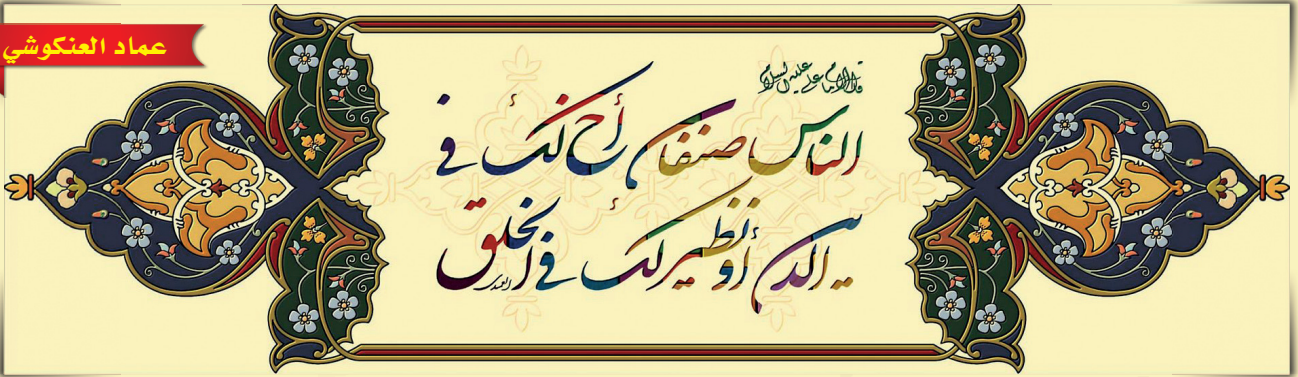 عماد العنكوشي
قال الامام علي عليه السلام
الناس صنفان أخ لك في
الدين أو نظير لك في الخلق